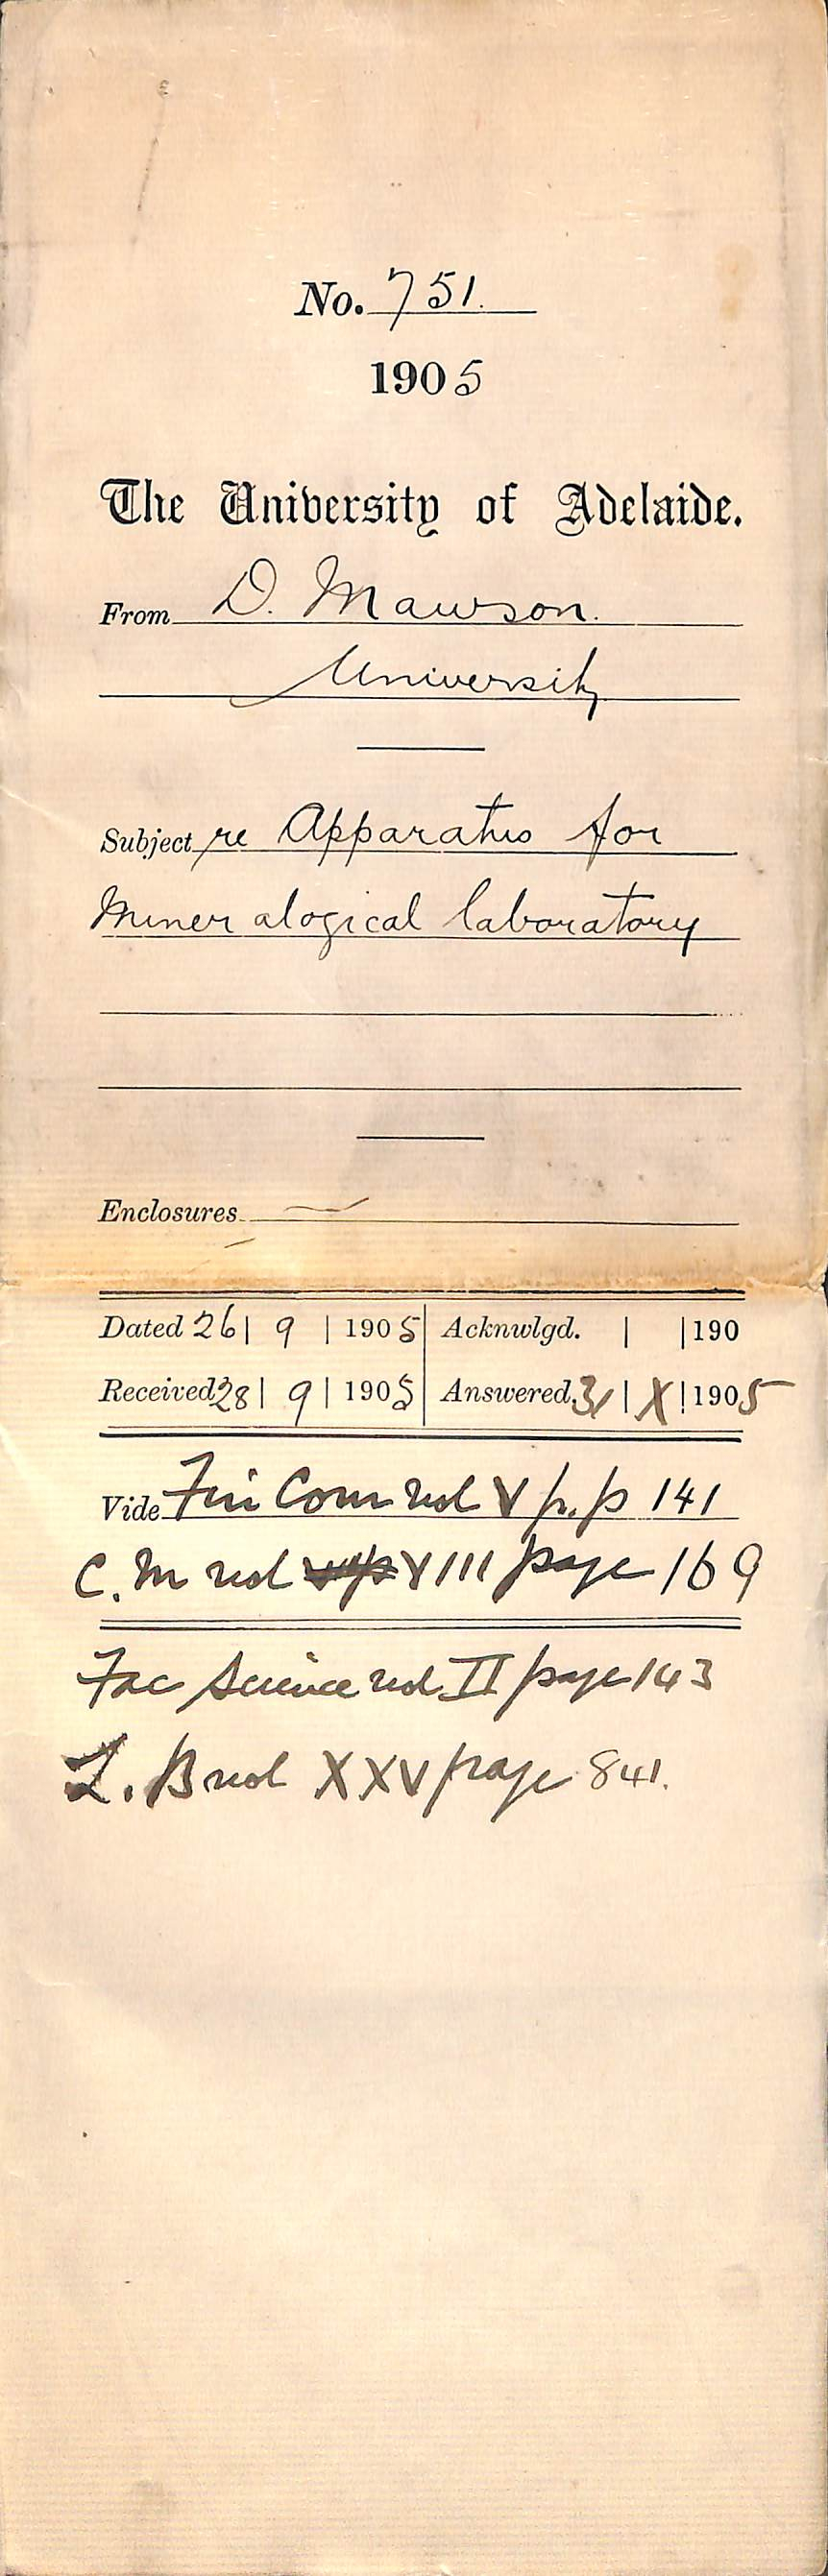 No. 751.
1905
The University of Adelaide.
From D. Mawson.
University
Subject re Apparatus for
Mineralogical laboratory
Enclosures
Dated 26 | 9 | 1905 | Acknwlgd. | | 190
Received 28 | 9 | 1905 | Answered. 31 | X | 1905
Vide Fin Com vol V p.p 141
C. M vol VIII page 169
Fac Science vol II page 143
L. B vol XXV page 841.